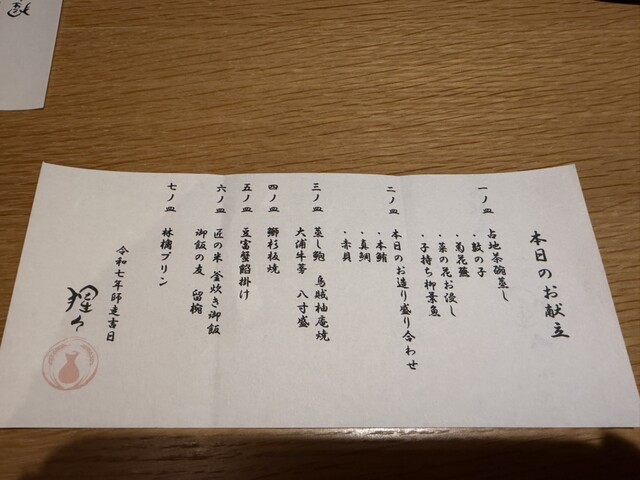 本日のお献立
一ノ皿 占地茶碗蒸し
・数の子
・菊花蕪
・菜の花お浸し
・子持ち柳葉魚
二ノ皿 本日のお造り盛り合わせ
・本鮪
・真鯛
・赤貝
三ノ皿 蒸し鮑 烏賊柚庵焼
大浦牛蒡 八寸盛
四ノ皿 鰤杉板焼
五ノ皿 豆富蟹餡掛け
六ノ皿 匠の米 釜炊き御飯
御飯の友 留椀
七ノ皿 林檎プリン
令和七年師走吉日